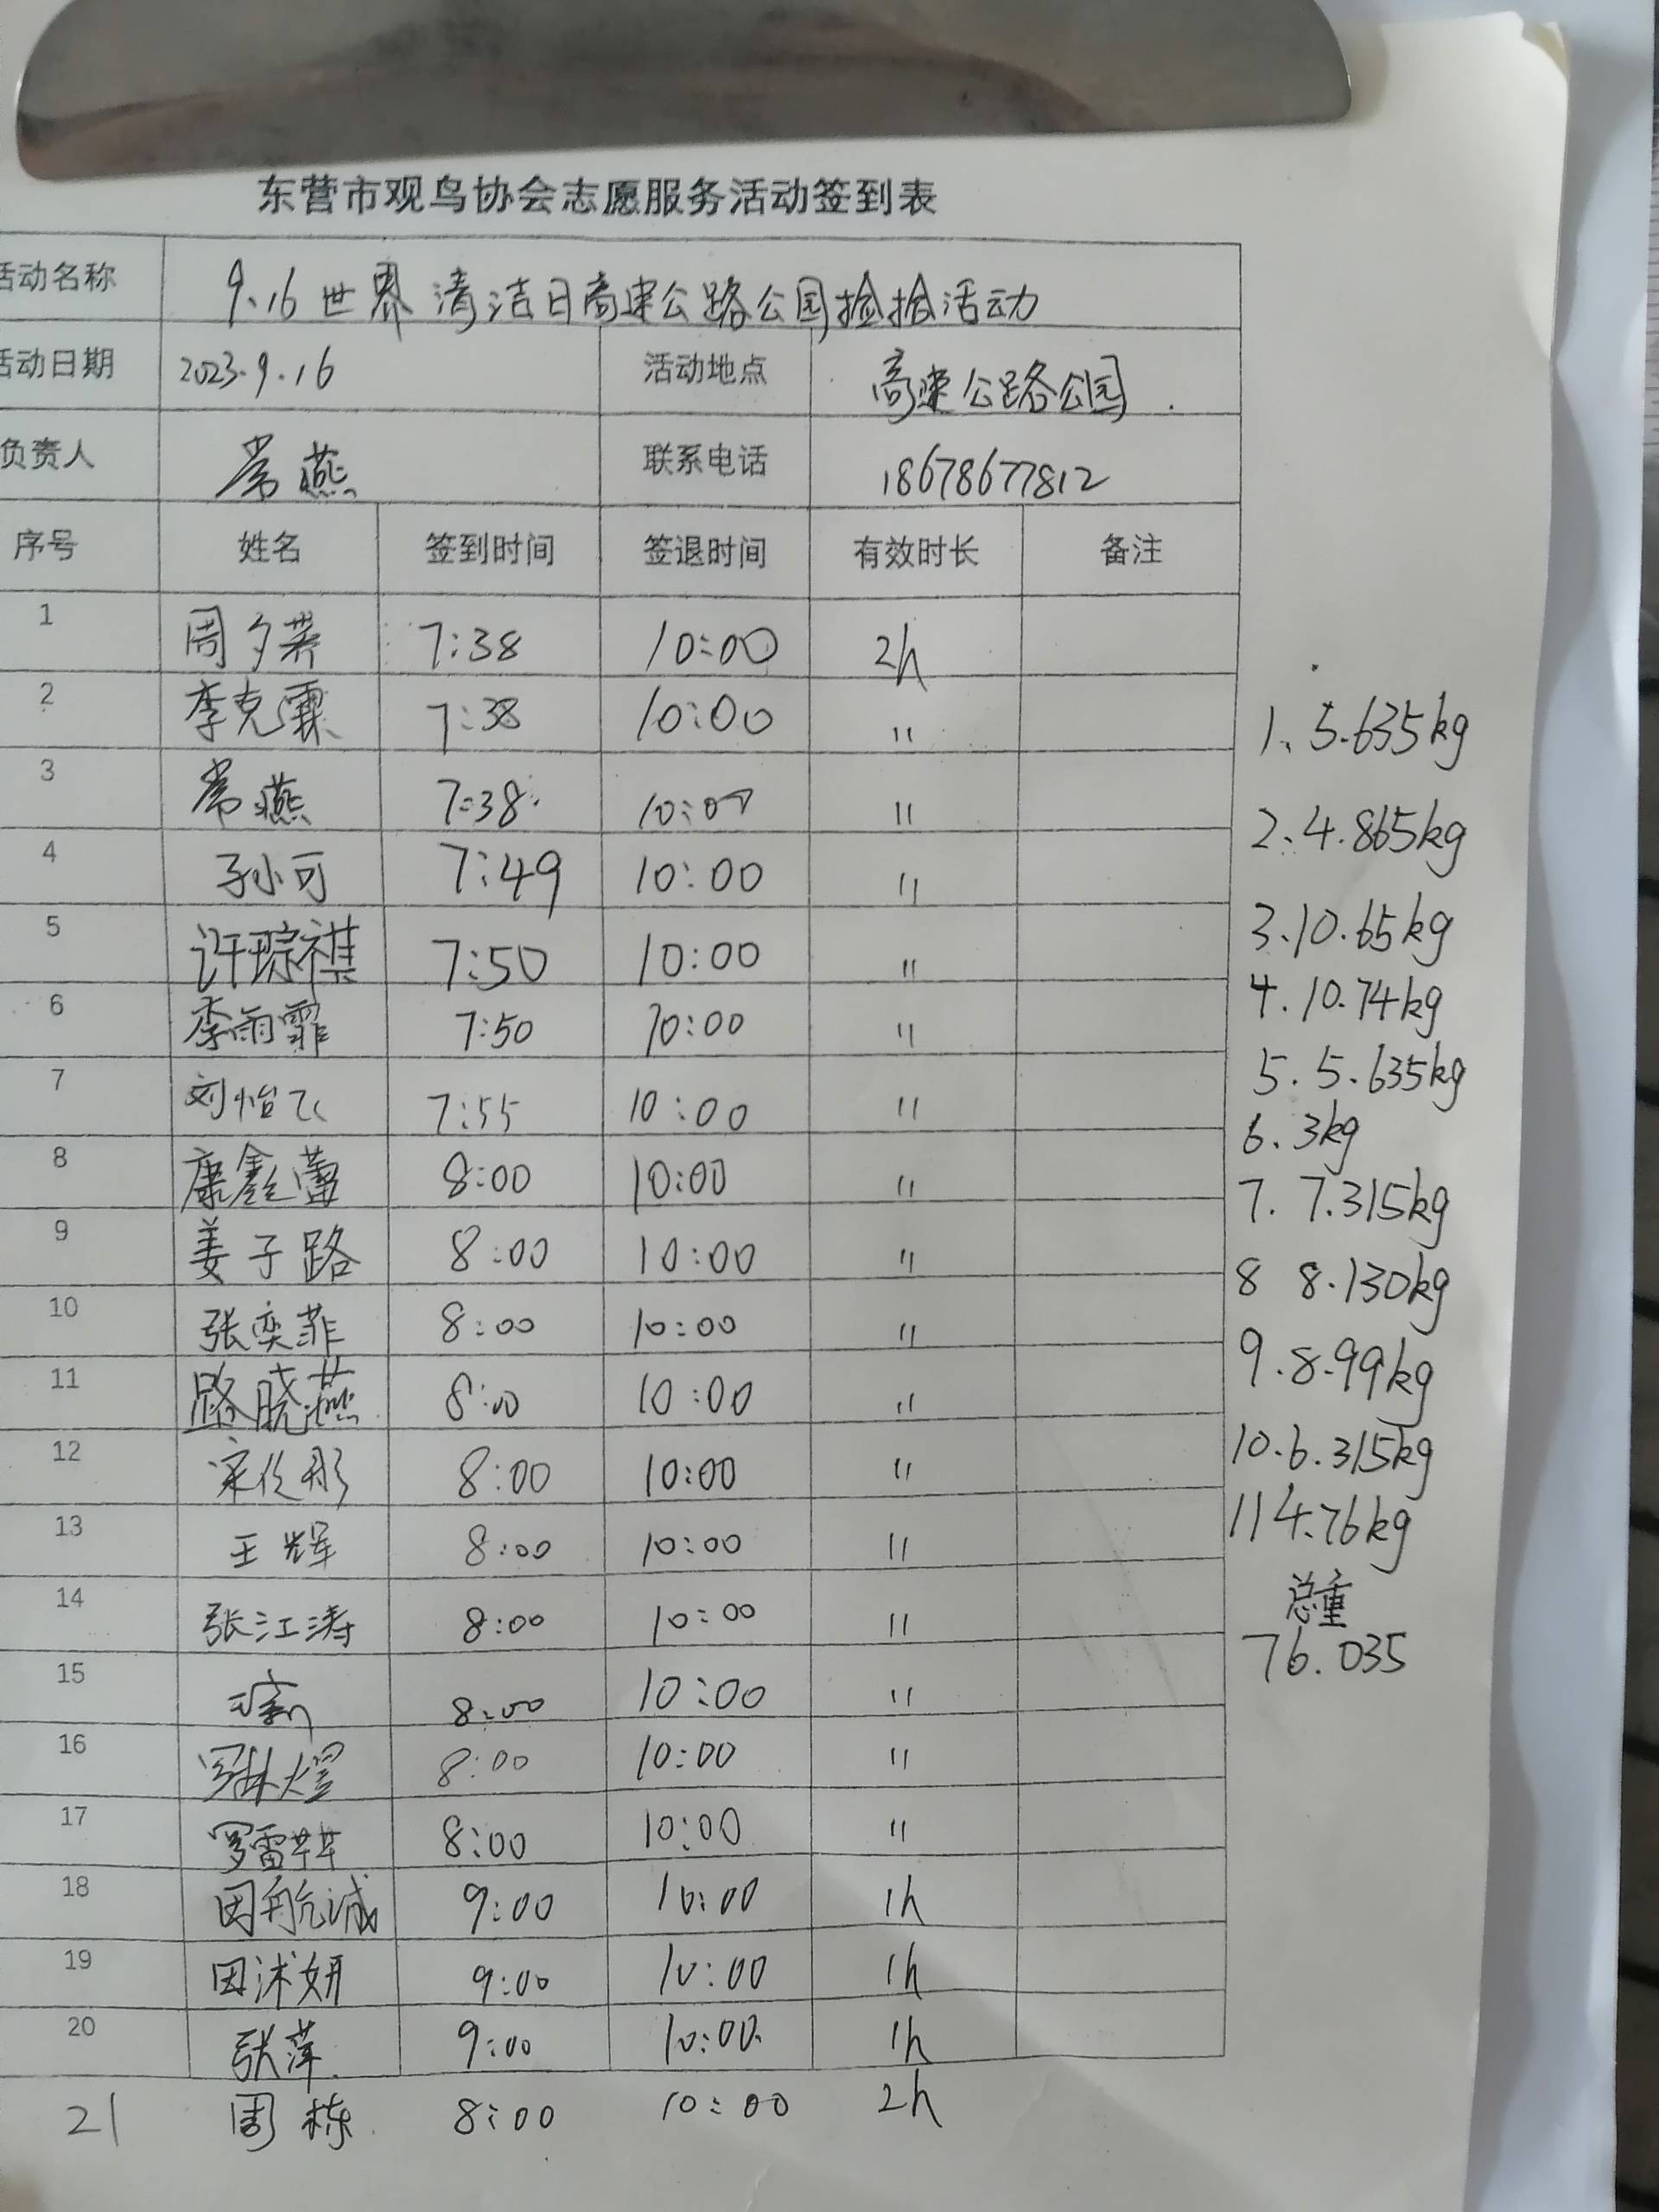 东营市观鸟协会志愿服务活动签到表
活动名称 9.16世界清洁日高速公路公园捡拾活动
活动日期 2023.9.16 活动地点 高速公路公园
负责人 常燕 联系电话 18678677812
序号 姓名 签到时间 签退时间 有效时长 备注
1 周夕 7:38 10:00 2h
2 李克霖 7:38 10:00 "
3 常燕 7:38 10:00 "
4 子小可 7:49 10:00 "
5 许琮祺 7:50 10:00 "
6 李雨霏 7:50 10:00 "
7 刘怡飞 7:55 10:00 "
8 康鑫蕾 8:00 10:00 "
9 姜子路 8:00 10:00 "
10 张奕菲 8:00 10:00 "
11 路晓燕 8:00 10:00 "
12 宋 彤 8:00 10:00 "
13 王辉 8:00 10:00 "
14 张江涛 8:00 10:00 "
15 8:00 10:00 "
16 罗 煜 8:00 10:00 "
17 罗雷 8:00 10:00 "
18 田航诚 9:00 10:00 1h
19 田沭妍 9:00 10:00 1h
20 张萍 9:00 10:00 1h
21 周栋 8:00 10:00 2h
1、5.635kg
2、4.865kg
3、10.65kg
4.10.74kg
5.5.635kg
6.3kg
7.7.315kg
8 8.130kg
9.8.99kg
10.6.315kg
11 4.76kg
总重
76.035